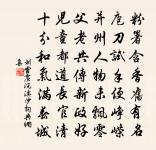 粉署含香舊有名
庖刀試手便崢嶸
并州人物未飄零
父老共傳新政好
兒童都道長官清
十分和氣滿城
劉雲震浣溪沙